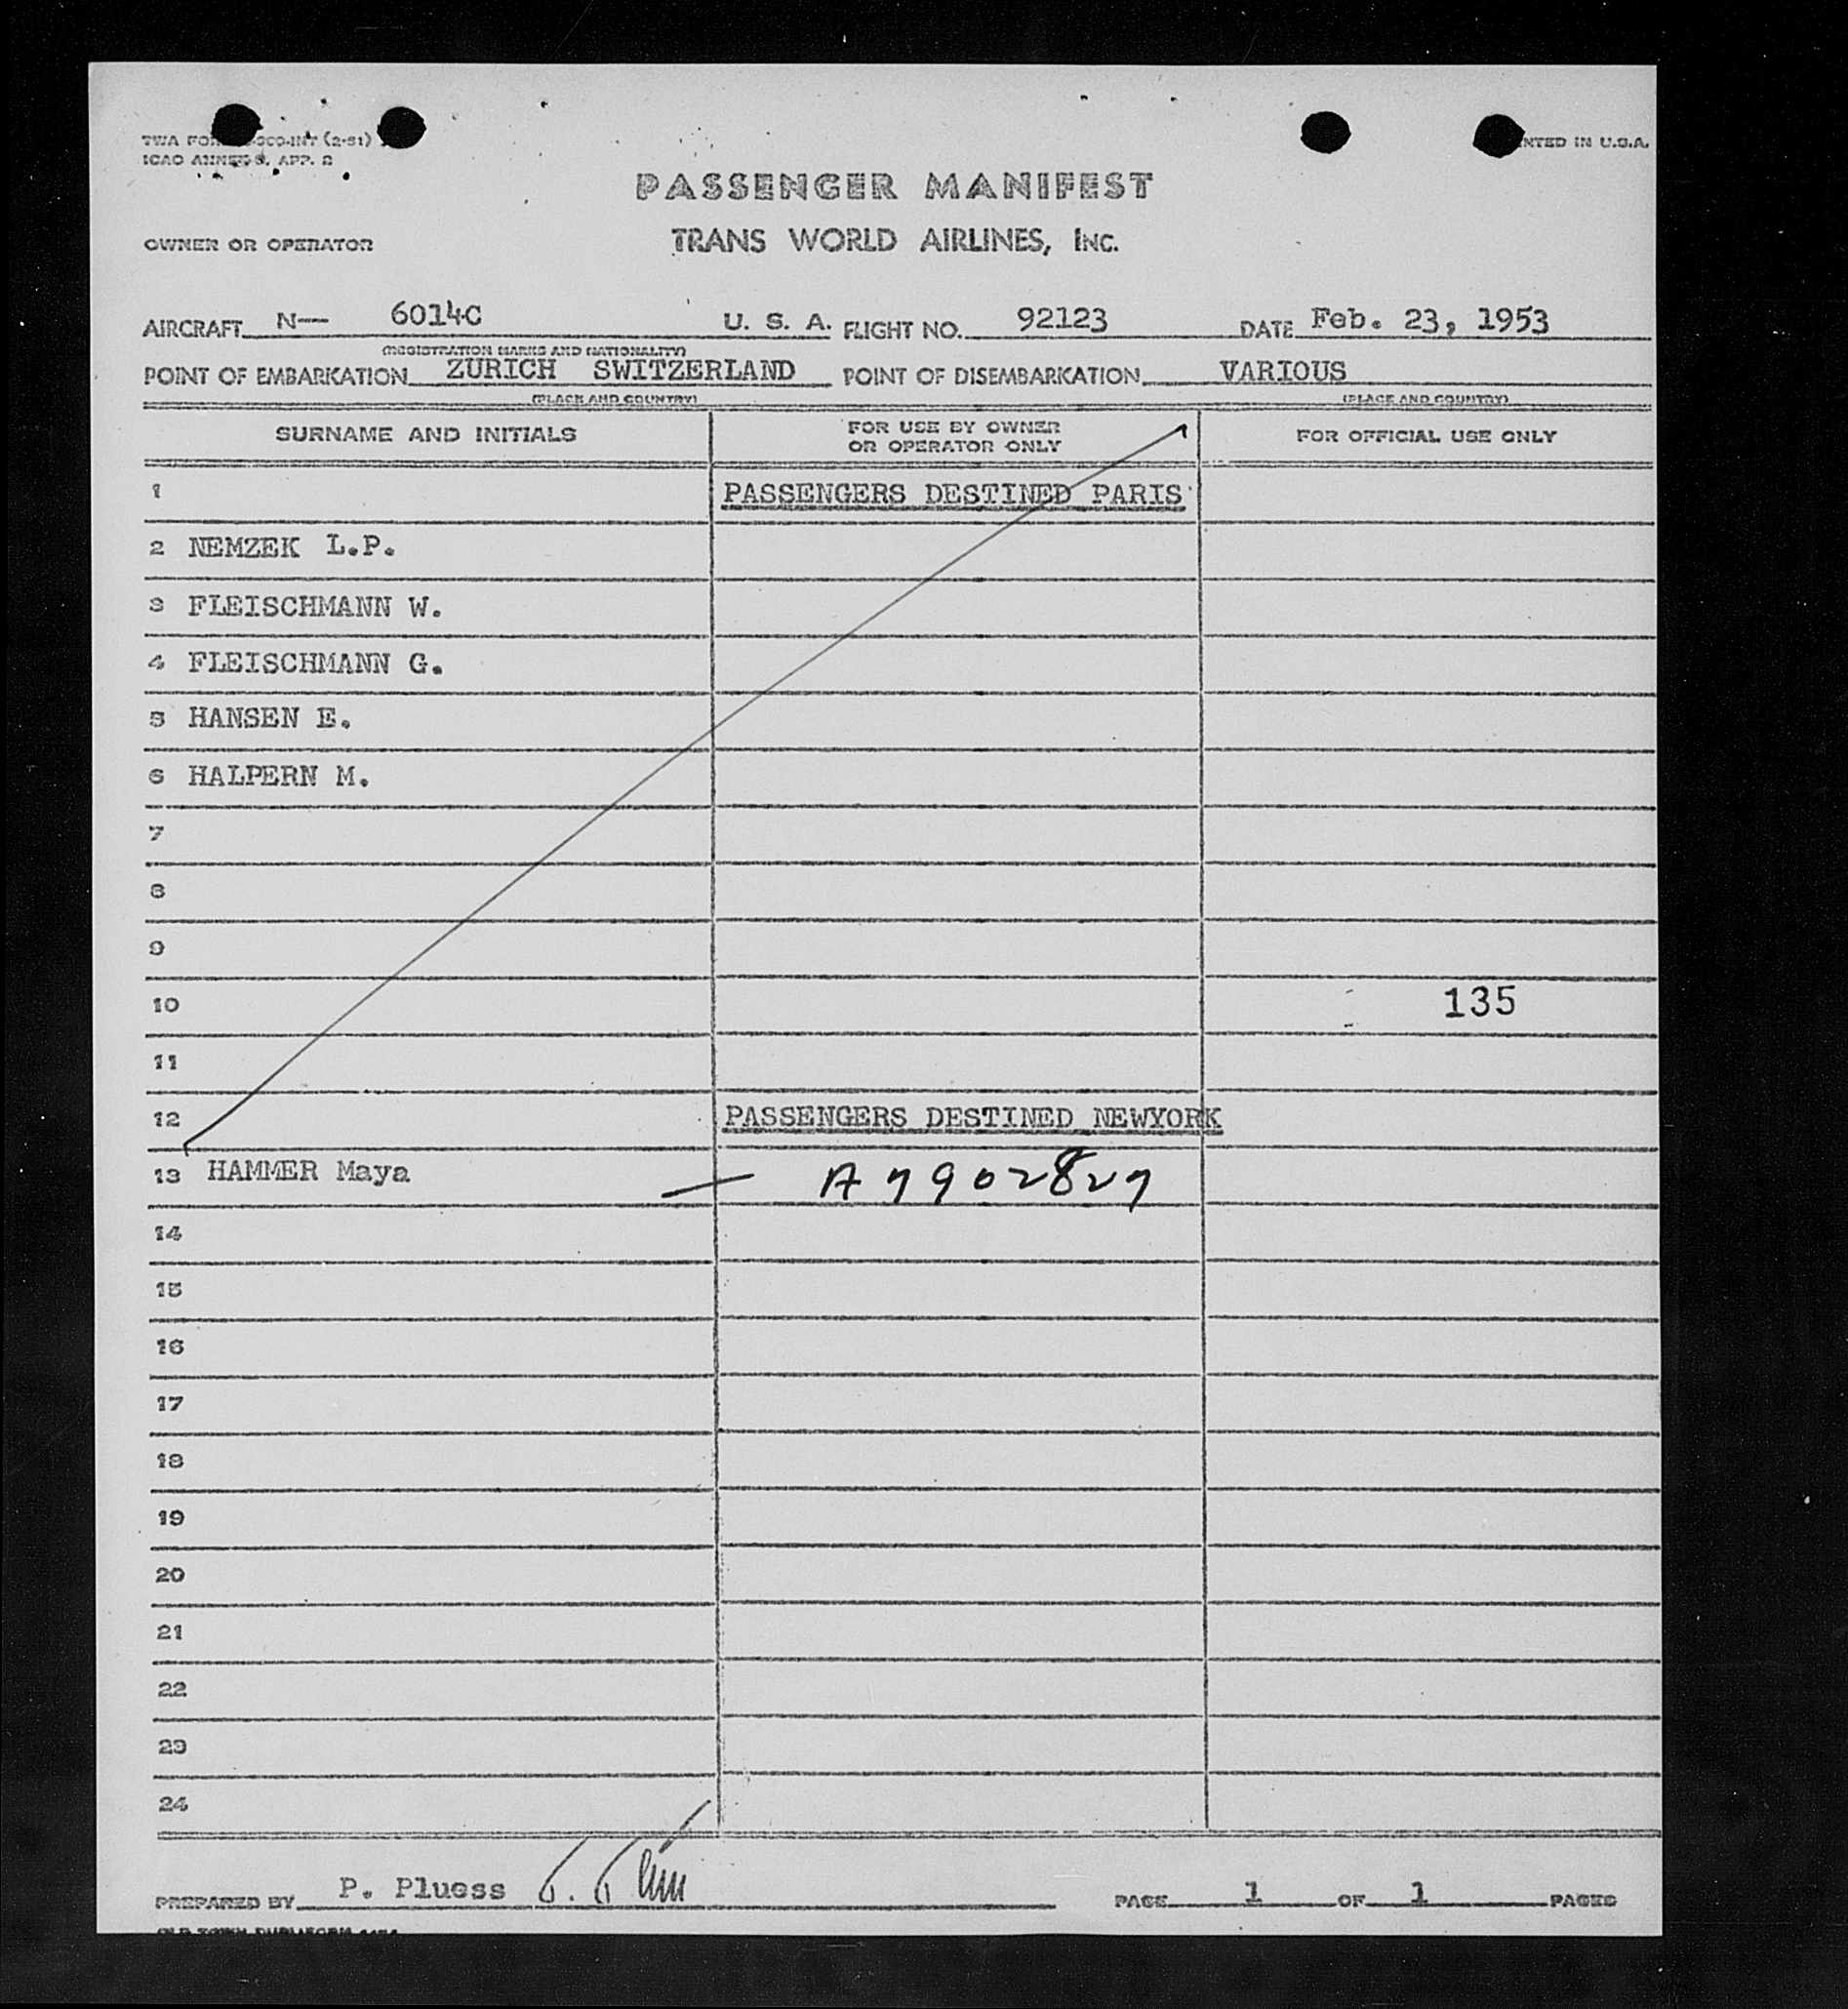 ICAO ANNEX 9, APP. 2
NTED IN U.S.A.
PASSENGER MANIFEST
OWNER OR OPERATOR TRANS WORLD AIRLINES, INC.
AIRCRAFT N— 6014C U. S. A. FLIGHT NO. 92123 DATE Feb. 23, 1953
(REGISTRATION MARKS AND NATIONALITY)
POINT OF EMBARKATION ZURICH SWITZERLAND POINT OF DISEMBARKATION VARIOUS
(PLACE AND COUNTRY) (PLACE AND COUNTRY)
SURNAME AND INITIALS
FOR USE BY OWNER
OR OPERATOR ONLY
FOR OFFICIAL USE ONLY
1 PASSENGERS DESTINED PARIS
2 NEMZEK L.P.
3 FLEISCHMANN W.
4 FLEISCHMANN G.
5 HANSEN E.
6 HALPERN M.
7
8
9
10 135
11
12 PASSENGERS DESTINED NEWYORK
13 HAMMER Maya — A7902827
14
15
16
17
18
19
20
21
22
23
24
PREPARED BY P. Pluess
PAGE 1 OF 1 PAGES